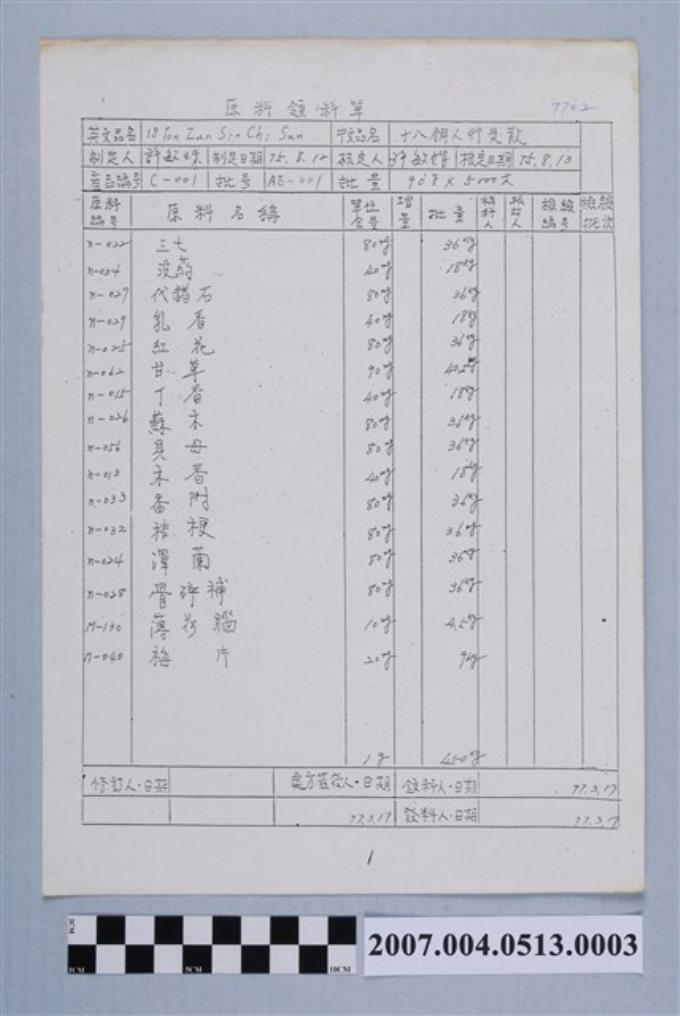 原料領料單
7702
英文品名 18 Ton Zun Sin Chi San 中文品名 十八銅人行氣散
制定人 許敏 制定日期 75.8.12 核定人 許敏 核定日期 75.8.13
產品編號 C-001 批号 AE-001 批量 90g×5000支
原料編号 原料名稱 單位含量 增量 批量 核料人 檢驗編号 檢驗批次
n-022 三七 80mg 36kg
n-034 沒藥 40mg 18kg
n-027 代赭石 80mg 36kg
n-029 乳香 40mg 18kg
n-025 紅花 80mg 36kg
n-062 甘草 90mg 40.5kg
n-015 丁香 40mg 18kg
n-026 蘇木 80mg 36kg
n-056 貝母 80mg 36kg
n-013 木香 40mg 18kg
n-033 香附 80mg 36kg
n-032 桔梗 80mg 36kg
n-024 澤蘭 80mg 36kg
n-028 骨碎補 80mg 36kg
M-130 薄荷腦 10mg 4.5kg
n-040 梅片 20mg 9kg
1g 450kg
修訂人·日期 處方簽發人·日期 領料人·日期 77.3.17
77.3.17 發料人·日期 77.3.17
1
1CM 5CM 10CM
2CM
2007.004.0513.0003